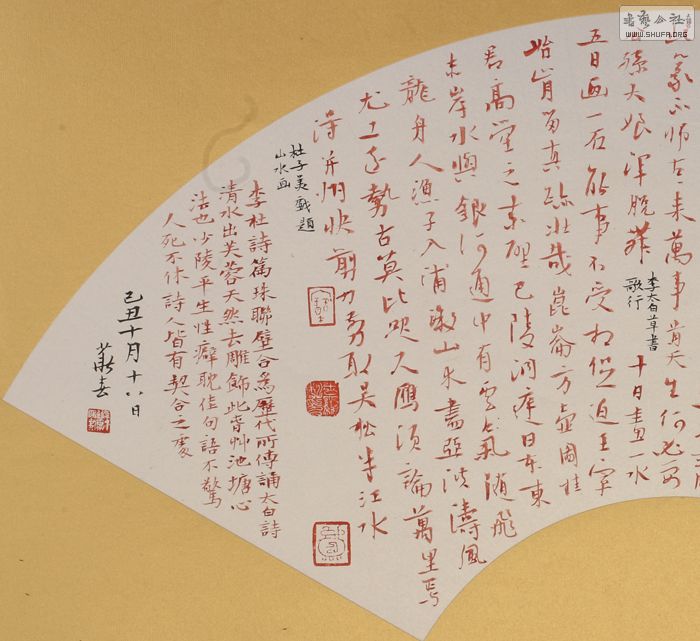 義不師古=来萬事貴天生何必要
孫大娘渾脱舞
李太白草書
歌行
十日畫一水
五日画一石能事不受相促迫王宰
始肯留真跡壯哉崑崙方壺圖挂
君高堂之素壁巴陵洞庭日本東
赤岸水與銀河通中有雲氣隨飛
龍舟人漁子入浦漵山木盡亞洪濤風
尤工遠勢古莫比咫尺應須論萬里焉
得并州快剪刀剪取吴松半江水
杜子美戲題
山水画
李杜詩篇珠聯璧合為歷代所傳誦太白詩
清水出芙蓉天然去雕飾此寄艸池塘心
法也少陵平生性癖耽佳句語不驚
人死不休詩人皆有契合之處
己丑十月十八日
書藝公社
WWW.SHUFA.ORG